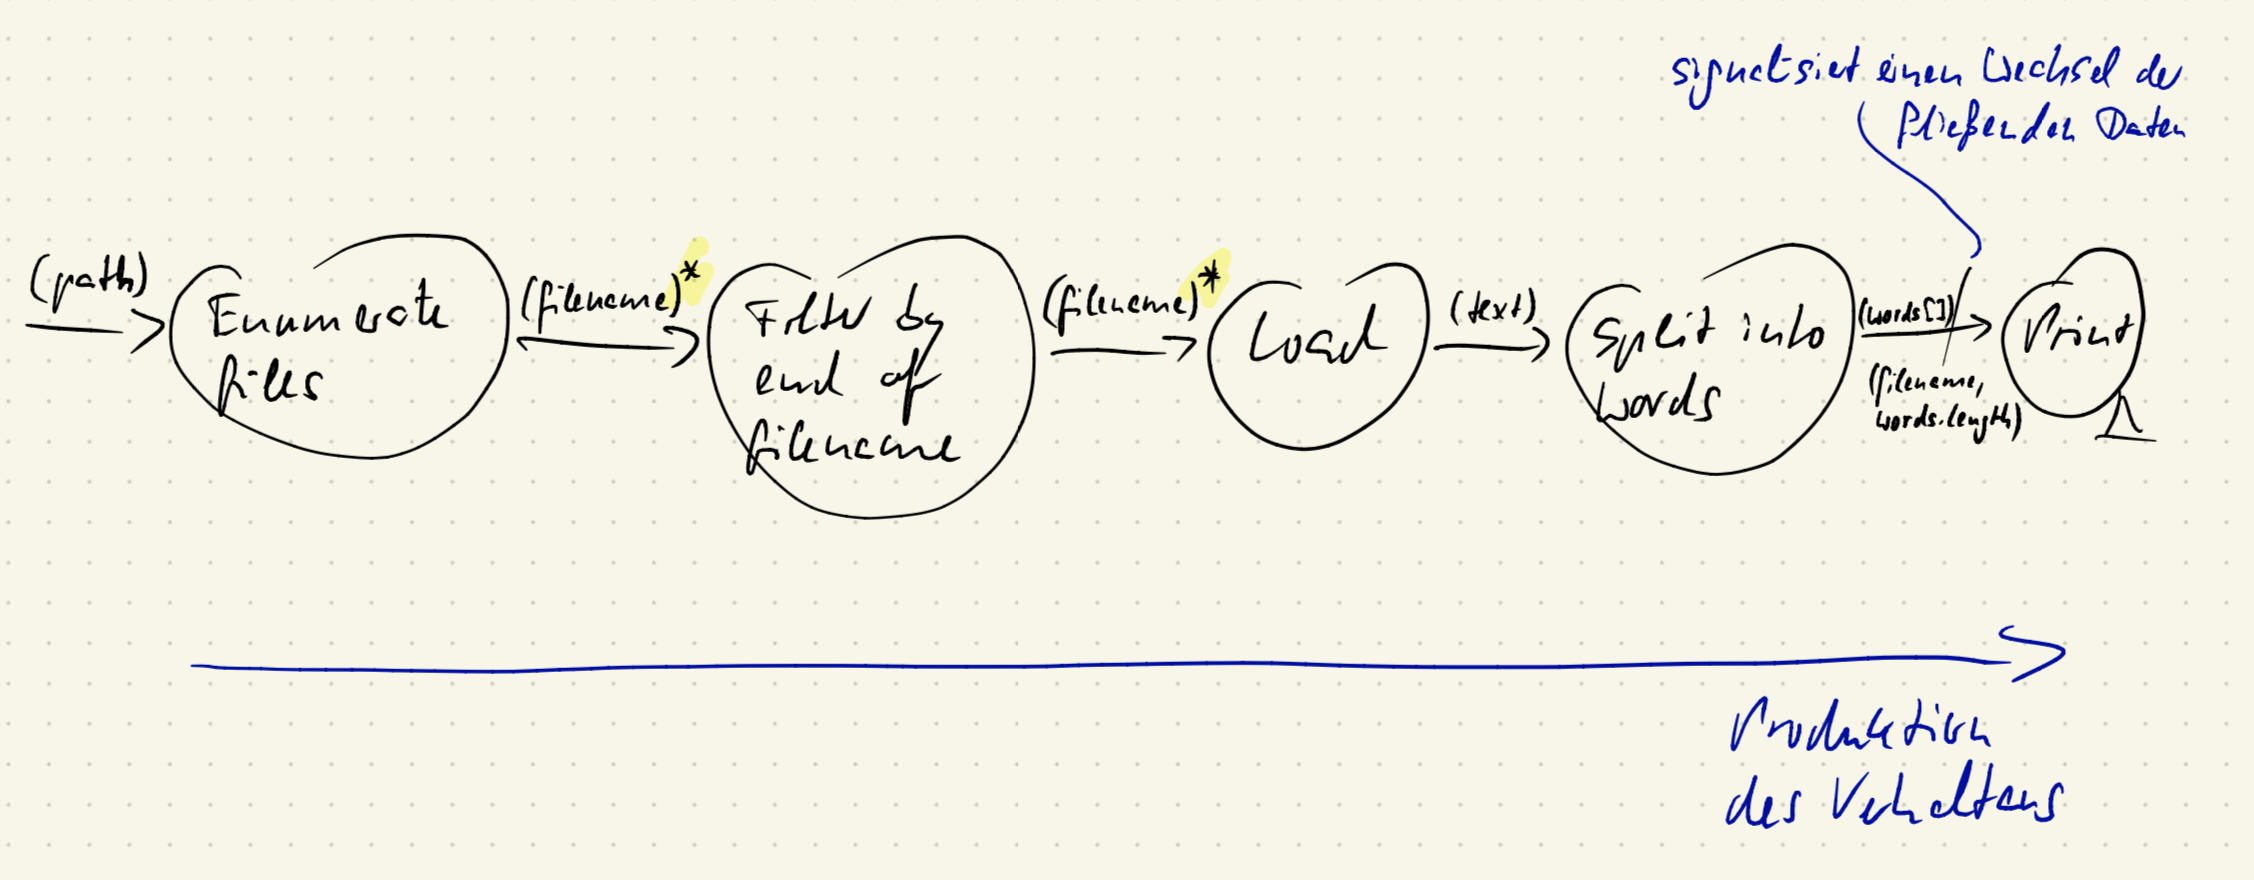 signalisiert einen Wechsel der
fließenden Daten
(path)
Enumerate
files
(filename)*
Filter by
end of
filename
(filename)*
Load
(text)
Split into
words
(words[])/
(filename,
words.length)
Print
Produktion
des Verhaltens